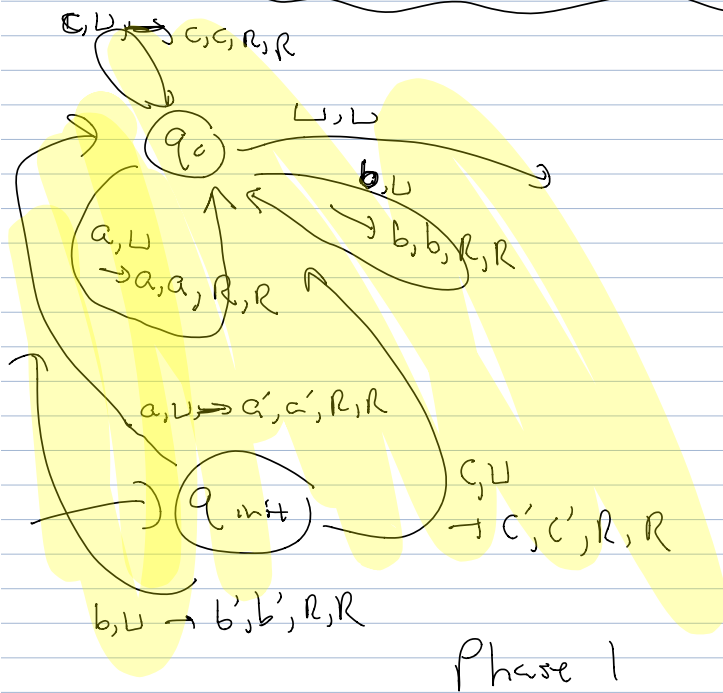 c,⊔ → c,c,R,R
q₀
⊔,⊔
b,⊔
→ b,b,R,R
a,⊔
→ a,a,R,R
a,⊔ → a',a',R,R
q init
c,⊔
→ c',c',R,R
b,⊔ → b',b',R,R
Phase 1